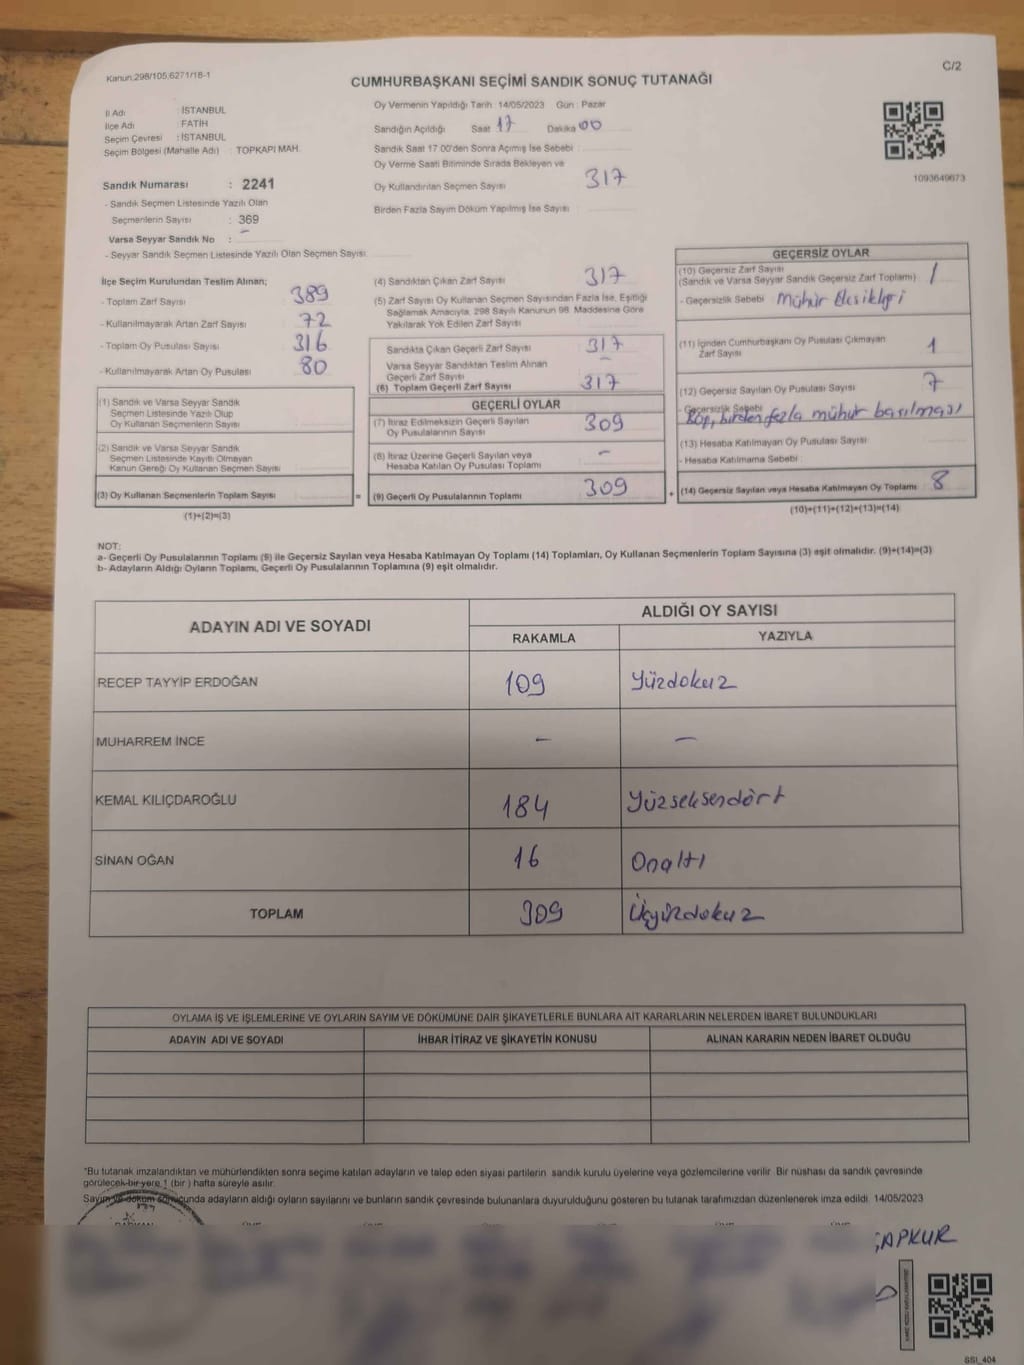 Kanun:298/105,6271/18-1
C/2
CUMHURBAŞKANI SEÇİMİ SANDIK SONUÇ TUTANAĞI
İl Adı : İSTANBUL
İlçe Adı : FATİH
Seçim Çevresi : İSTANBUL
Seçim Bölgesi (Mahalle Adı) : TOPKAPI MAH.
Oy Vermenin Yapıldığı Tarih :14/05/2023 Gün : Pazar
Sandığın Açıldığı Saat 17 Dakika 00
Sandık Saat 17.00'den Sonra Açımış İse Sebebi :
Oy Verme Saati Bitiminde Sırada Bekleyen ve
Oy Kullandırılan Seçmen Sayısı 317
Birden Fazla Sayım Döküm Yapılmış İse Sayısı
1093649673
Sandık Numarası : 2241
- Sandık Seçmen Listesinde Yazılı Olan
Seçmenlerin Sayısı : 369
Varsa Seyyar Sandık No : -
- Seyyar Sandık Seçmen Listesinde Yazılı Olan Seçmen Sayısı:
İlçe Seçim Kurulundan Teslim Alınan;
- Toplam Zarf Sayısı 389
- Kullanılmayarak Artan Zarf Sayısı 72
- Toplam Oy Pusulası Sayısı 316
- Kullanılmayarak Artan Oy Pusulası 80
(4) Sandıktan Çıkan Zarf Sayısı 317
(5) Zarf Sayısı Oy Kullanan Seçmen Sayısından Fazla İse, Eşitliği
Sağlamak Amacıyla, 298 Sayılı Kanunun 98. Maddesine Göre
Yakılarak Yok Edilen Zarf Sayısı
Sandıkta Çıkan Geçerli Zarf Sayısı 317
Varsa Seyyar Sandıktan Teslim Alınan
Geçerli Zarf Sayısı -
(6) Toplam Geçerli Zarf Sayısı 317
(1) Sandık ve Varsa Seyyar Sandık
Seçmen Listesinde Yazılı Olup
Oy Kullanan Seçmenlerin Sayısı
(2) Sandık ve Varsa Seyyar Sandık
Seçmen Listesinde Kayıtlı Olmayan
Kanun Gereği Oy Kullanan Seçmen Sayısı
(3) Oy Kullanan Seçmenlerin Toplam Sayısı =
(1)+(2)=(3)
GEÇERLİ OYLAR
(7) İtiraz Edilmeksizin Geçerli Sayılan
Oy Pusulalarının Sayısı 309
(8) İtiraz Üzerine Geçerli Sayılan veya
Hesaba Katılan Oy Pusulası Toplamı -
(9) Geçerli Oy Pusulalarının Toplamı 309 +
GEÇERSİZ OYLAR
(10) Geçersiz Zarf Sayısı
(Sandık ve Varsa Seyyar Sandık Geçersiz Zarf Toplamı) 1
- Geçersizlik Sebebi Mühür Eksikliği
(11) İçinden Cumhurbaşkanı Oy Pusulası Çıkmayan
Zarf Sayısı 1
(12) Geçersiz Sayılan Oy Pusulası Sayısı 7
- Geçersizlik Sebebi birden fazla mühür basılması
(13) Hesaba Katılmayan Oy Pusulası Sayısı
- Hesaba Katılmama Sebebi :
(14) Geçersiz Sayılan veya Hesaba Katılmayan Oy Toplamı 8
(10)+(11)+(12)+(13)=(14)
NOT:
a- Geçerli Oy Pusulalarının Toplamı (9) ile Geçersiz Sayılan veya Hesaba Katılmayan Oy Toplamı (14) Toplamları, Oy Kullanan Seçmenlerin Toplam Sayısına (3) eşit olmalıdır. (9)+(14)=(3)
b- Adayların Aldığı Oyların Toplamı, Geçerli Oy Pusulalarının Toplamına (9) eşit olmalıdır.
ADAYIN ADI VE SOYADI
ALDIĞI OY SAYISI
RAKAMLA YAZIYLA
RECEP TAYYİP ERDOĞAN 109 Yüzdokuz
MUHARREM İNCE - -
KEMAL KILIÇDAROĞLU 184 Yüzseksendört
SİNAN OĞAN 16 Onaltı
TOPLAM 309 Üçyüzdokuz
OYLAMA İŞ VE İŞLEMLERİNE VE OYLARIN SAYIM VE DÖKÜMÜNE DAİR ŞİKAYETLERLE BUNLARA AİT KARARLARIN NELERDEN İBARET BULUNDUKLARI
ADAYIN ADI VE SOYADI İHBAR İTİRAZ VE ŞİKAYETİN KONUSU ALINAN KARARIN NEDEN İBARET OLDUĞU
*Bu tutanak imzalandıktan ve mühürlendikten sonra seçime katılan adayların ve talep eden siyasi partilerin sandık kurulu üyelerine veya gözlemcilerine verilir. Bir nüshası da sandık çevresinde
görülecek bir yere 1 (bir ) hafta süreyle asılır.
Sayım ve döküm sonucunda adayların aldığı oyların sayılarını ve bunların sandık çevresinde bulunanlara duyurulduğunu gösteren bu tutanak tarafımızdan düzenlenerek imza edildi. 14/05/2023
ÇAPKUR
SSI_404